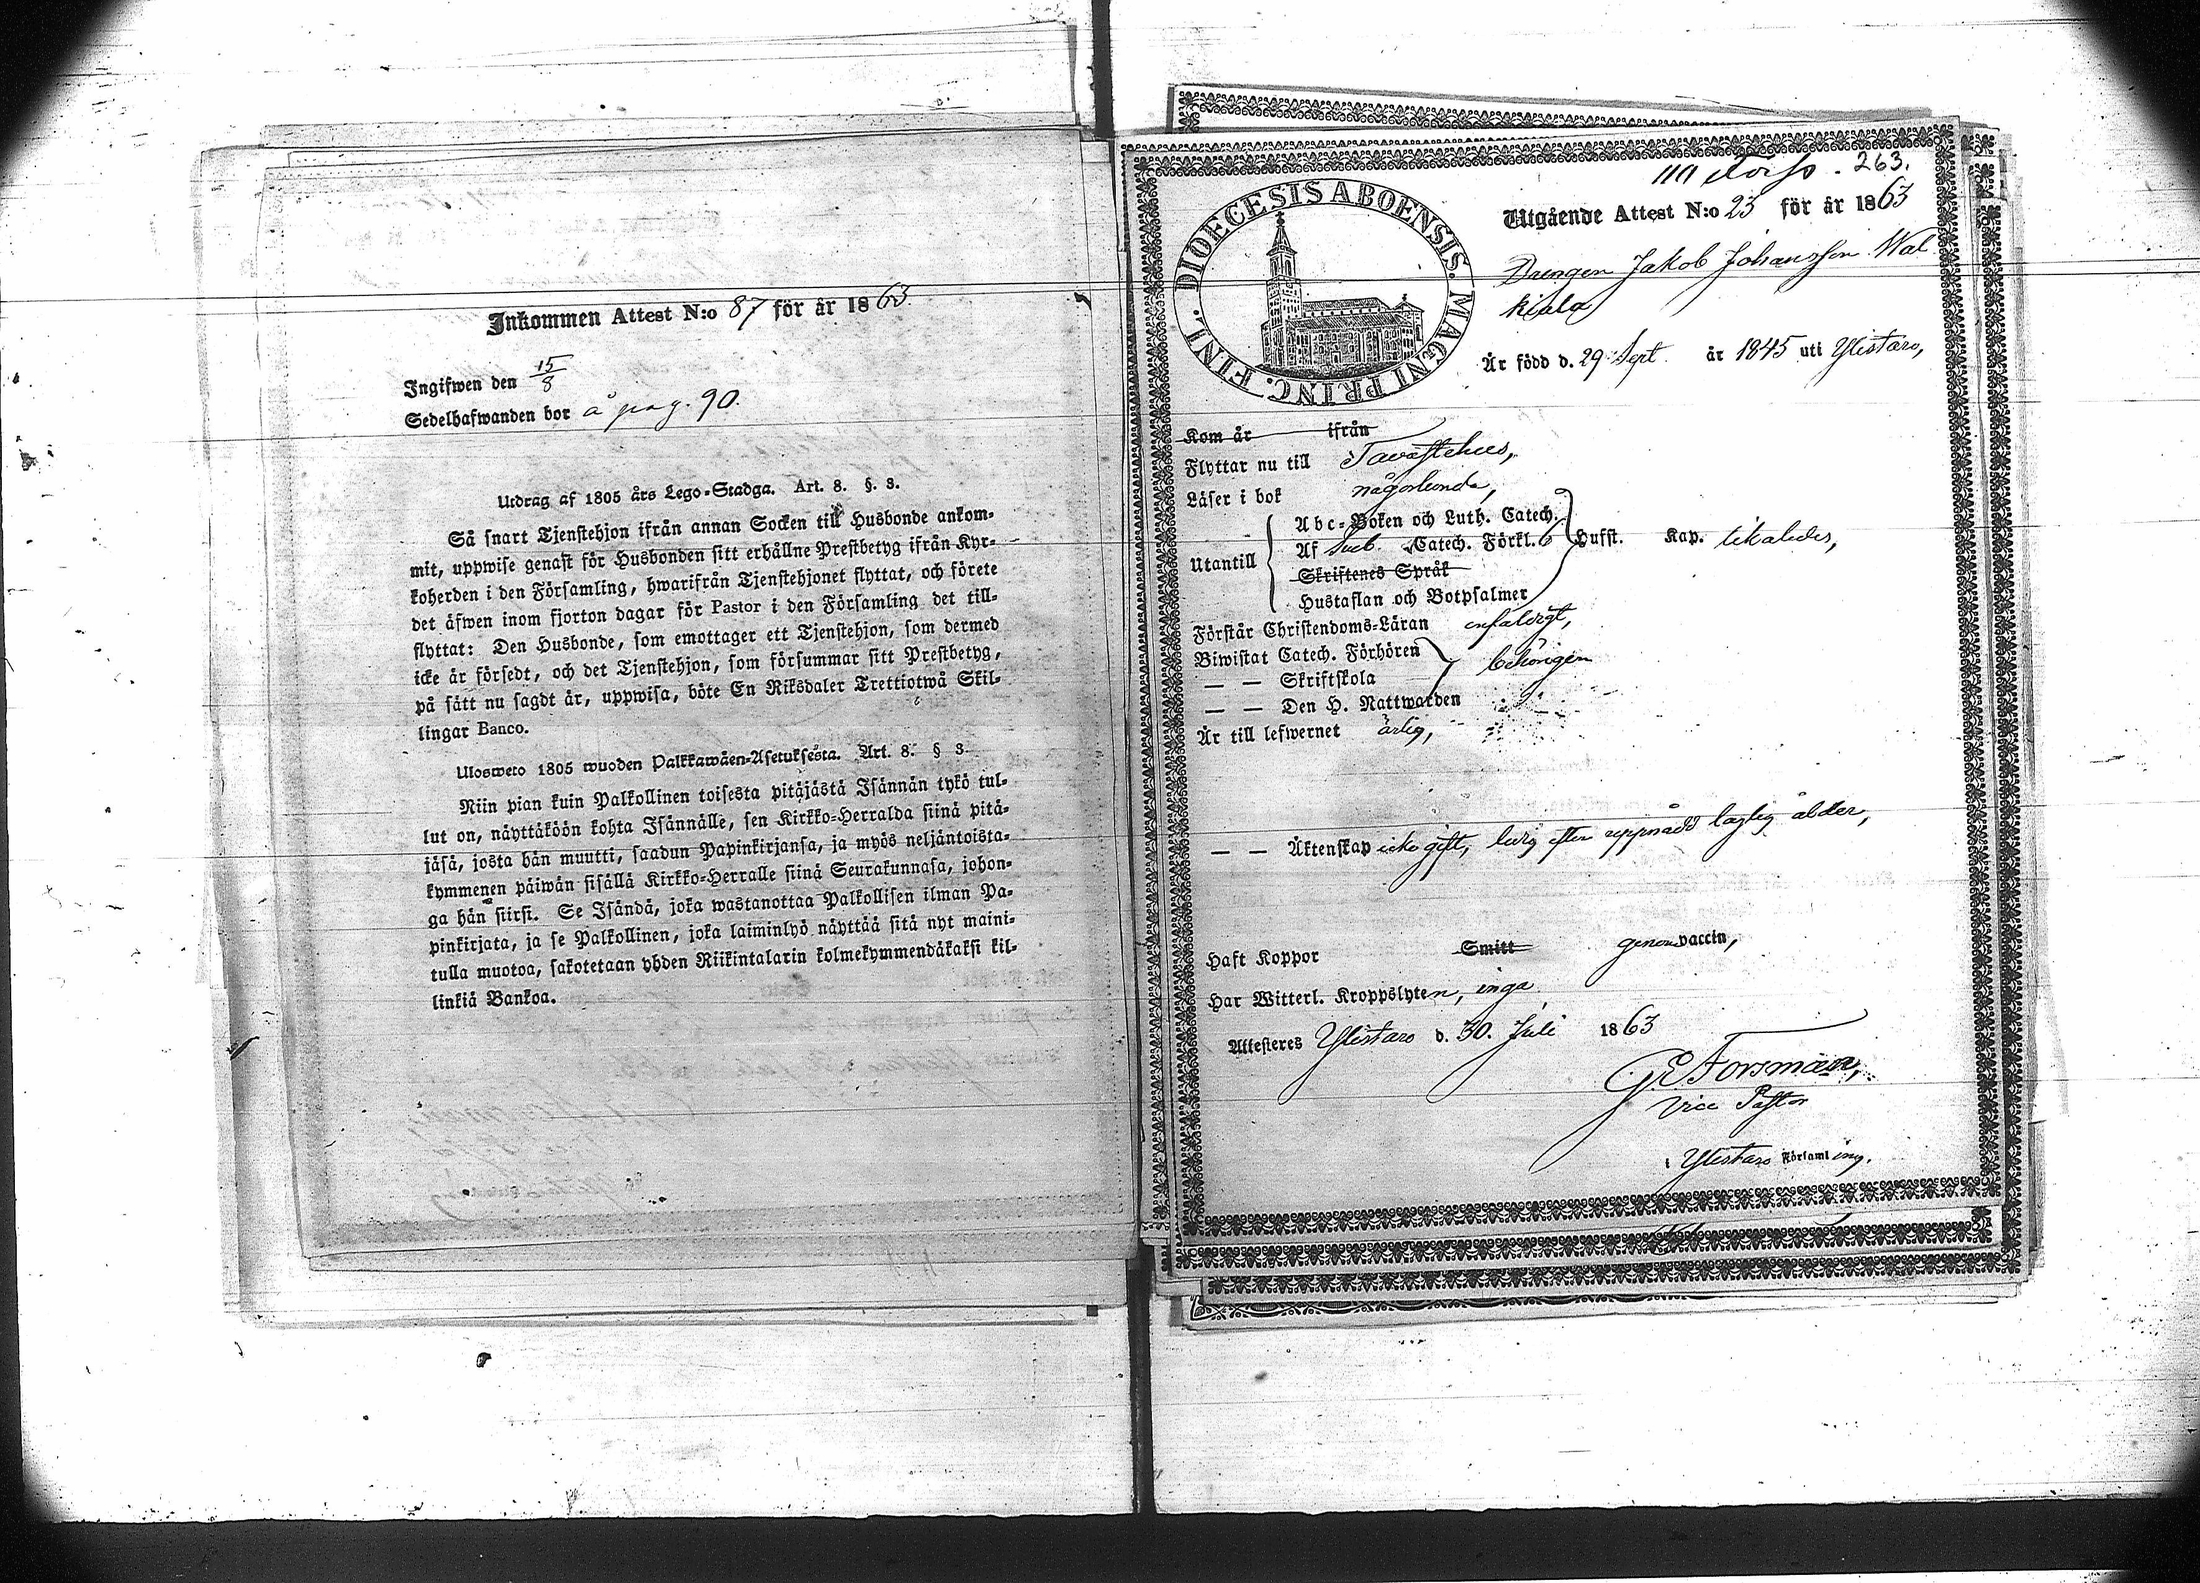 Inkommen Attest N:o 87 för år 1863.
Ingifwen den 15/8
Sedelhafwanden bor å pag. 90.
Utdrag af 1805 års Lego-Stadga. Art. 8. §. 3.
Så snart Tjenstehjon ifrån annan Socken till Husbonde ankom-
mit, uppwise genast för Husbonden sitt erhållne Prestbetyg ifrån Kyr-
koherden i den Församling, hwarifrån Tjenstehjonet flyttat, och förete
det äfwen inom fjorton dagar för Pastor i den Församling det till-
flyttat: Den Husbonde, som emottager ett Tjenstehjon, som dermed
icke är försedt, och det Tjenstehjon, som försummar sitt Prestbetyg,
på sätt nu sagdt är, uppwisa, böte En Riksdaler Trettiotwå Skil-
lingar Banco.
Ulosweto 1805 wuoden Palkkawäen-Asetuksesta. Art. 8. § 3.
Niin pian kuin Palkollinen toisesta pitäjästä Isännän tykö tul-
lut on, näyttäköön kohta Isännälle, sen Kirkko-Herralda siinä pitä-
jäsä, josta hän muutti, saadun Papinkirjansa, ja myös neljäntoista-
kymmenen päiwän sisällä Kirkko-Herralle siinä Seurakunnasa, johon-
ga hän siirsi. Se Isändä, joka wastanottaa Palkollisen ilman Pa-
pinkirjata, ja se Palkollinen, joka laiminlyö näyttää sitä nyt maini-
tulla muotoa, sakotetaan yhden Riikintalarin kolmekymmendäkaksi kil-
linkiä Bankoa.
263.
DIOECESIS ABOENSIS. MAGNI PRINC. FINL.
Utgående Attest N:o 23 för år 1863
Drengen Jakob Johansson Wal
kiala
Är född d. 29 Sept. år 1845 uti Ylistaro,
Kom år ifrån
Flyttar nu till Tavastehus,
Läser i bok någorlunda,
Abc-Boken och Luth. Catech.
Utantill Af Sveb. Catech. Förkl. 6 Hufst. Kap. likaledes,
Skriftenes Språk
Hustaflan och Botpsalmer
Förstår Christendoms-Läran enfaldigt,
Biwistat Catech. Förhören behörigen
— — Skriftskola
— — Den H. Nattwarden
Är till lefwernet ärlig,
— — Äktenskap icke gift, ledig efter uppnådd laglig ålder,
Haft Koppor Smitt genom vaccin,
Har Witterl. Kroppslyten, inga
Attesteres Ylistaro d. 30. Juli 1863
G. E. Forsman,
Vice Pastor
i Ylistaro Församling.